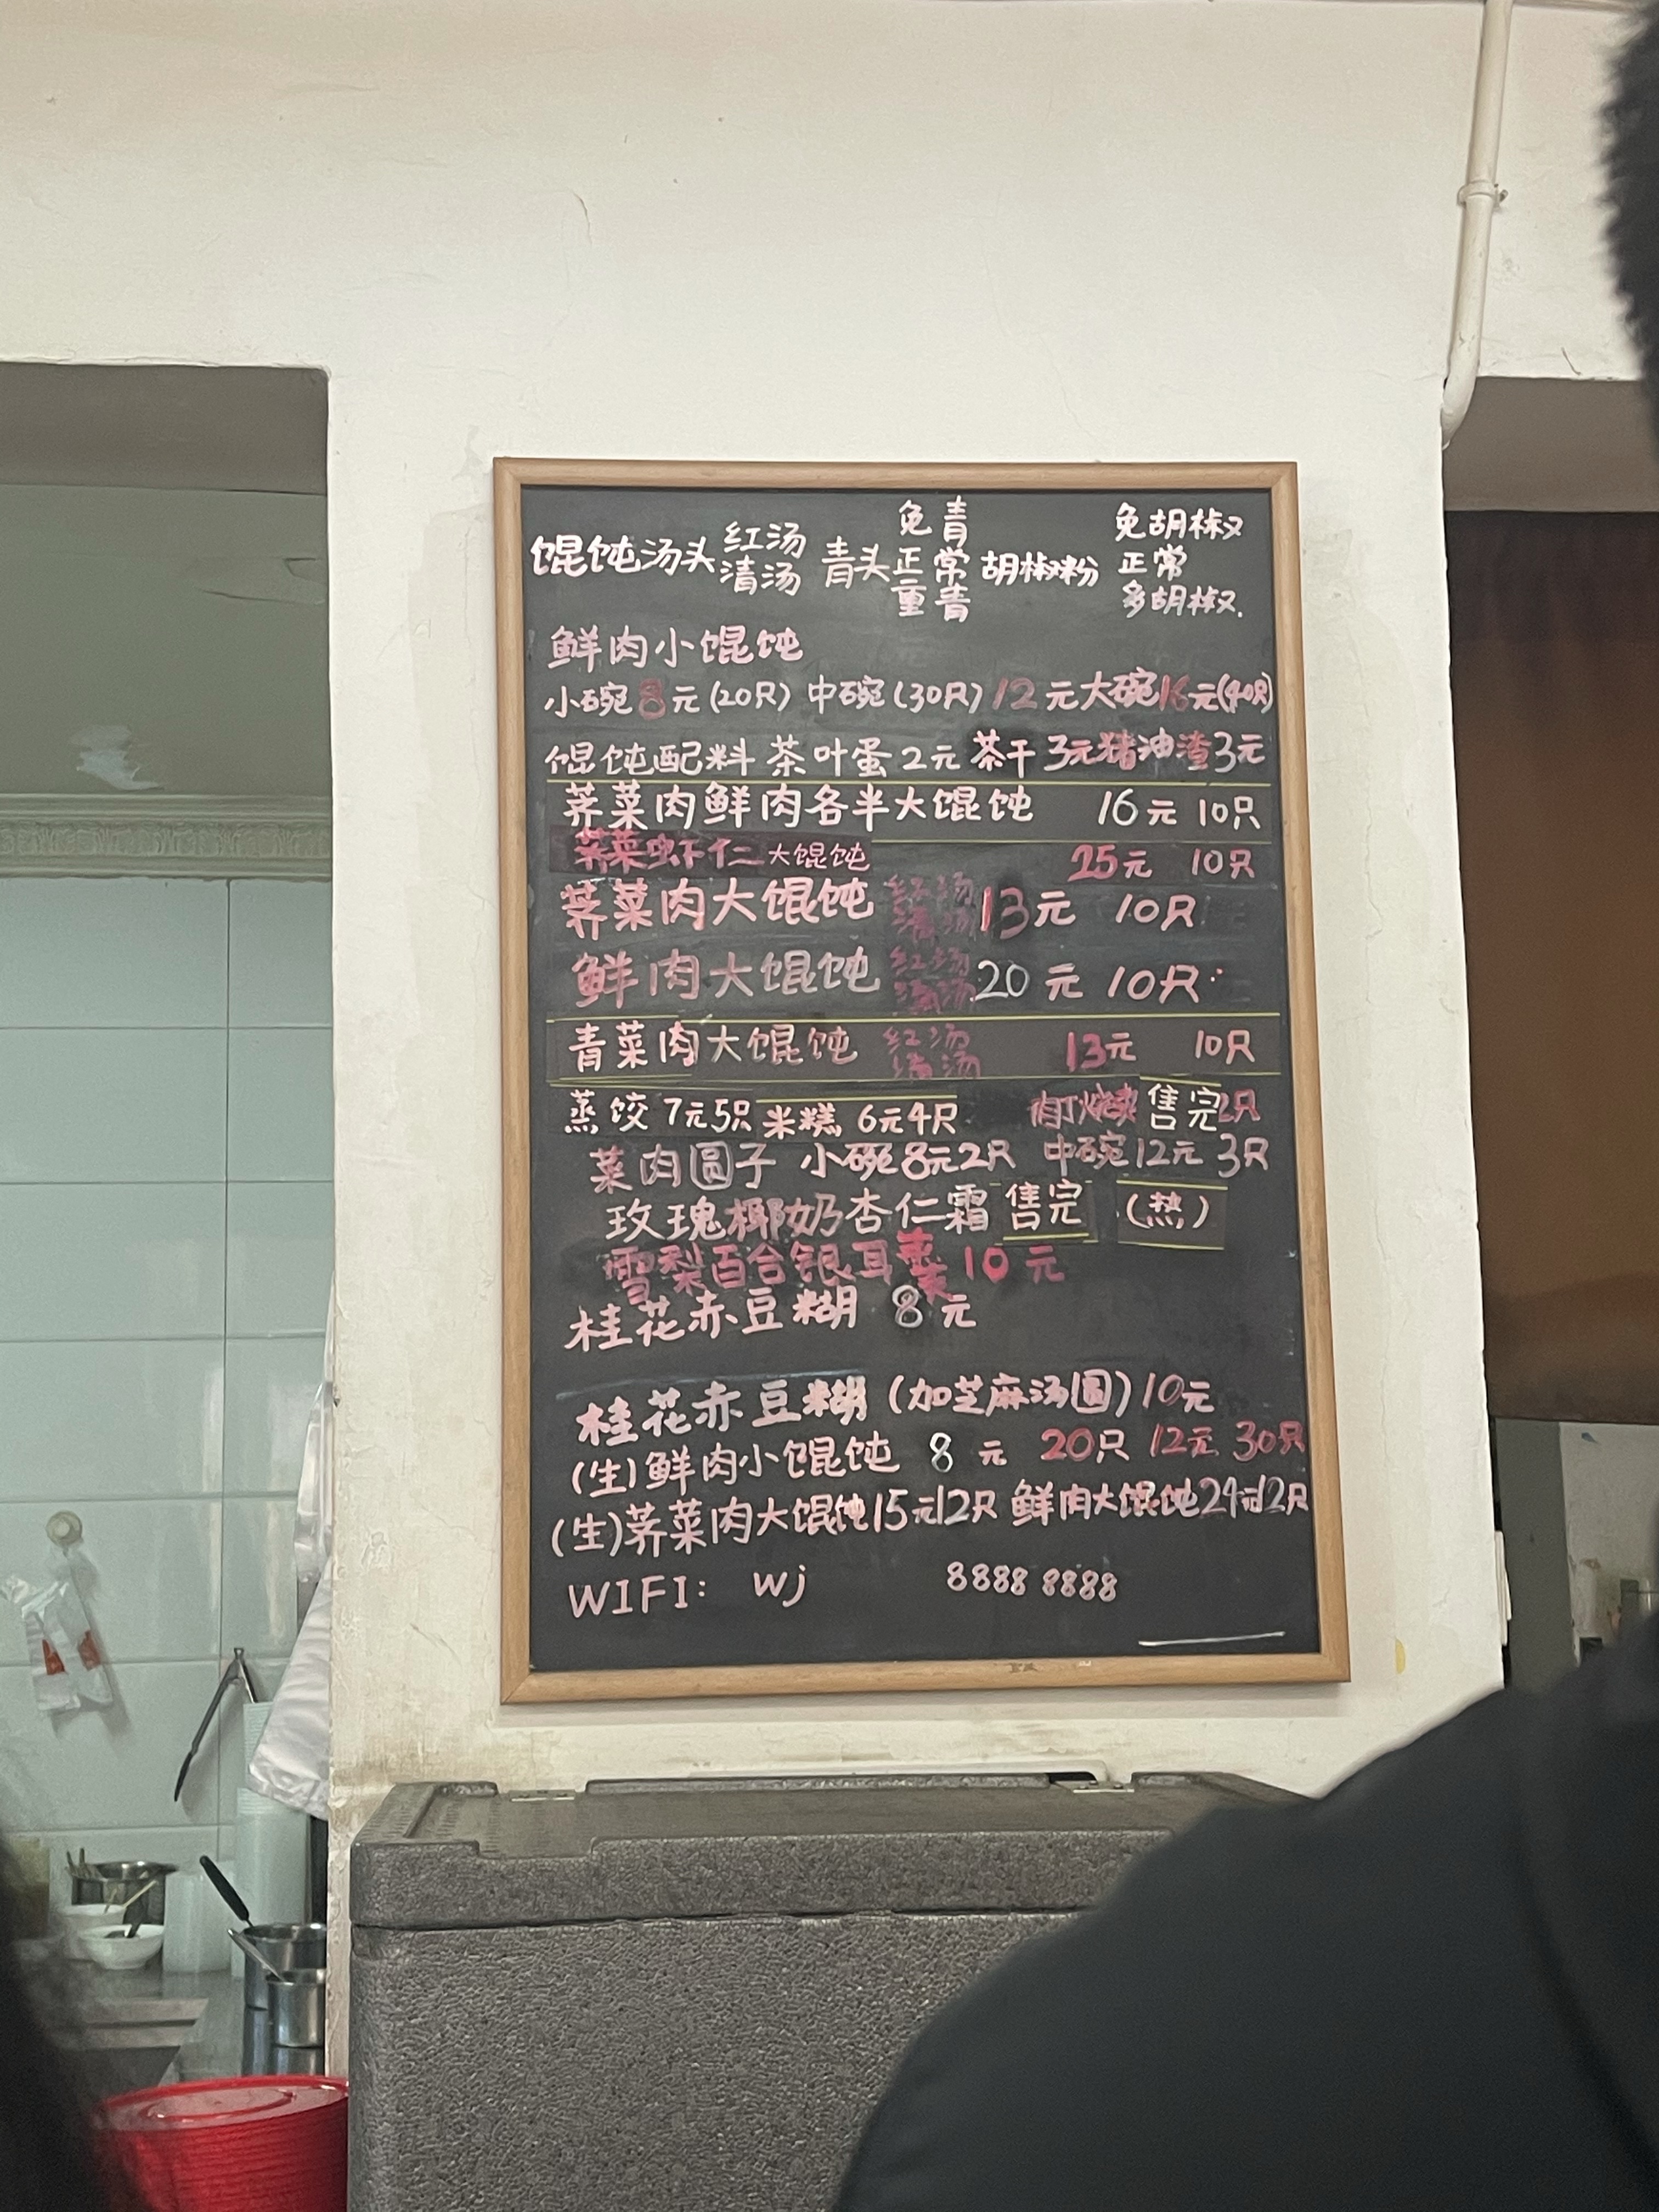 馄饨汤头 红汤 清汤 青头 免青 正常 重青 胡椒粉 免胡椒 正常 多胡椒
鲜肉小馄饨
小碗8元(20只) 中碗(30只)12元 大碗16元(40只)
馄饨配料 茶叶蛋2元 茶干3元 猪油渣3元
荠菜肉鲜肉各半大馄饨 16元 10只
荠菜虾仁大馄饨 25元 10只
荠菜肉大馄饨 红汤 清汤 13元 10只
鲜肉大馄饨 红汤 清汤 20元 10只
青菜肉大馄饨 红汤 清汤 13元 10只
蒸饺7元5只 米糕6元4只 售完 2只
菜肉圆子 小碗8元2只 中碗12元3只
玫瑰椰奶杏仁霜 售完 (热)
雪梨百合银耳羹 10元
桂花赤豆糊 8元
桂花赤豆糊(加芝麻汤圆)10元
(生)鲜肉小馄饨 8元 20只 12元 30只
(生)荠菜肉大馄饨15元12只 鲜肉大馄饨24元12只
WIFI: wj 8888 8888